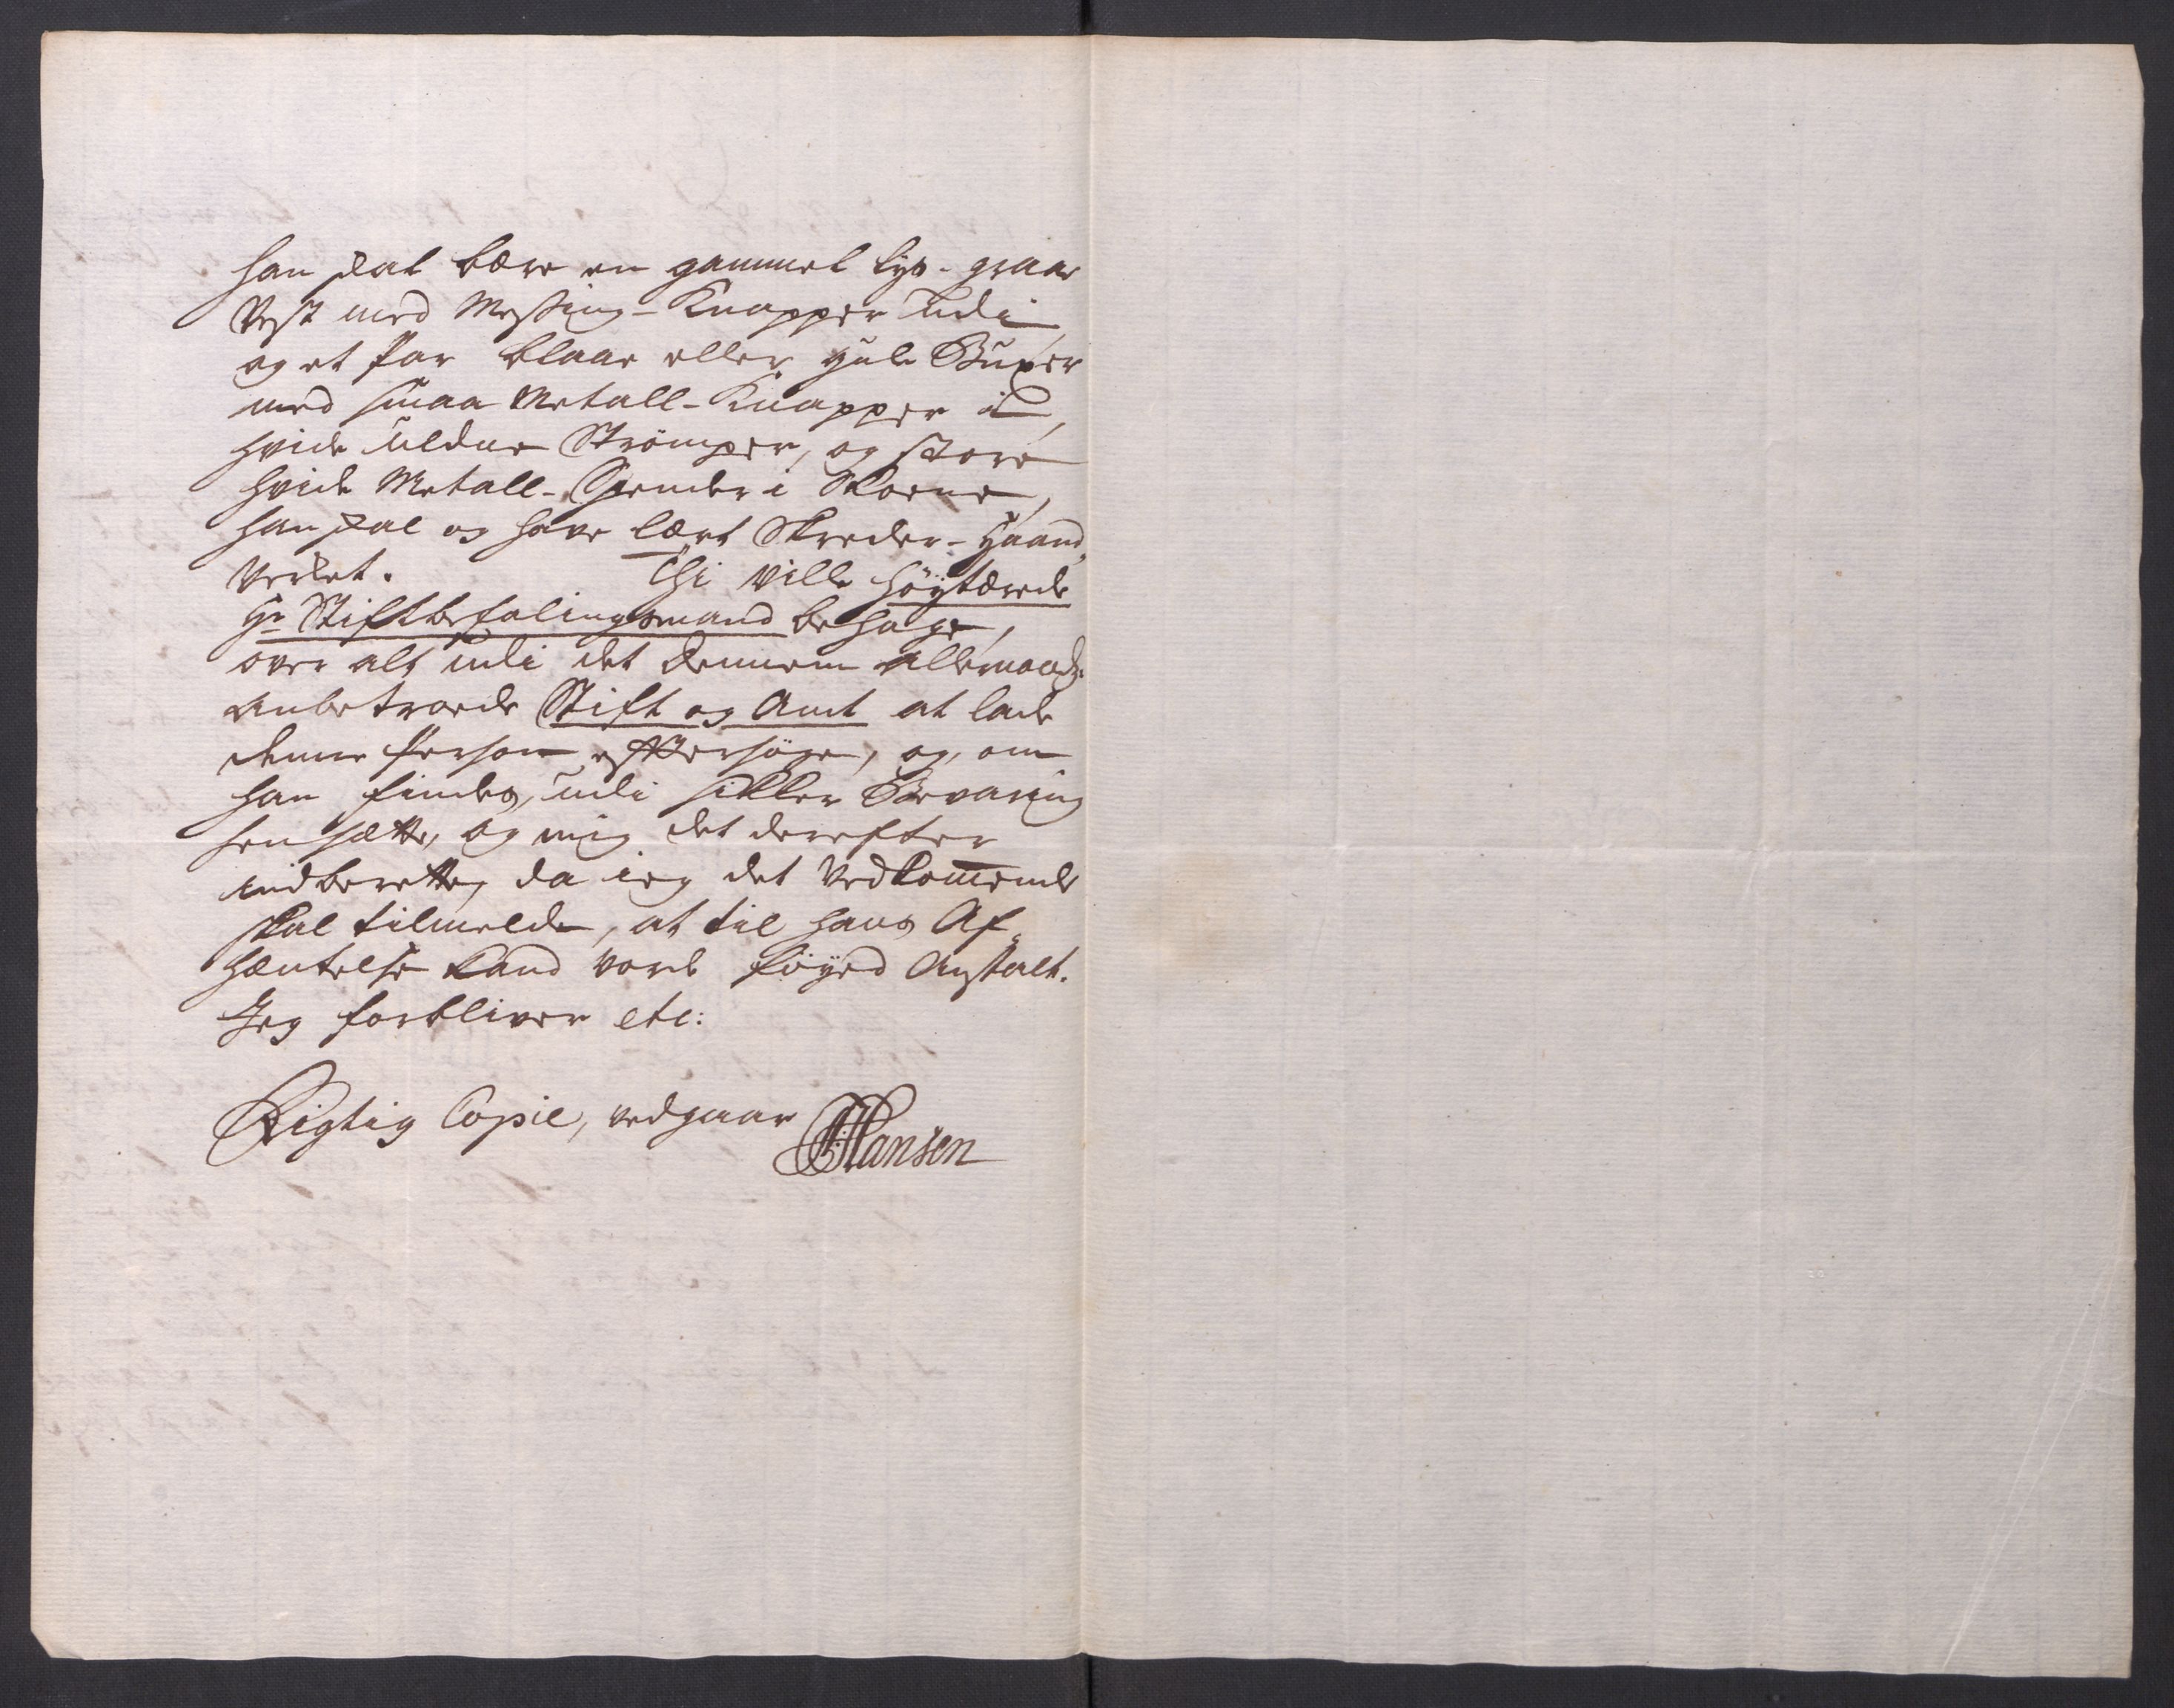 han skal bære en gammel lys-graae
Vest med Messing-Knapper udi,
og et Par blaae eller gule Buxer
med smaa Metall-Knapper i,
hvide uldne Strömper, og store
hvide Metall-Spender i Skoene,
han skal og have lært Skreder-Haand„
verket. Thi ville höytærede
Hr Stiftbefalingsmand behage,
over alt udi det Dennem allernaadigst
anbetroede Stift og Amt at lade
denne Person eftersöge, og, om
han findes, udi sikker Bevaring
hensætte, og mig det derefter
indberette, da ieg det Vedkom̄ende
skal tilmelde, at til hans Af„
hæntelse kand vorde föyed Anstalt.
Jeg forbliver etc:
Rigtig Copie, vedgaar
Hansen